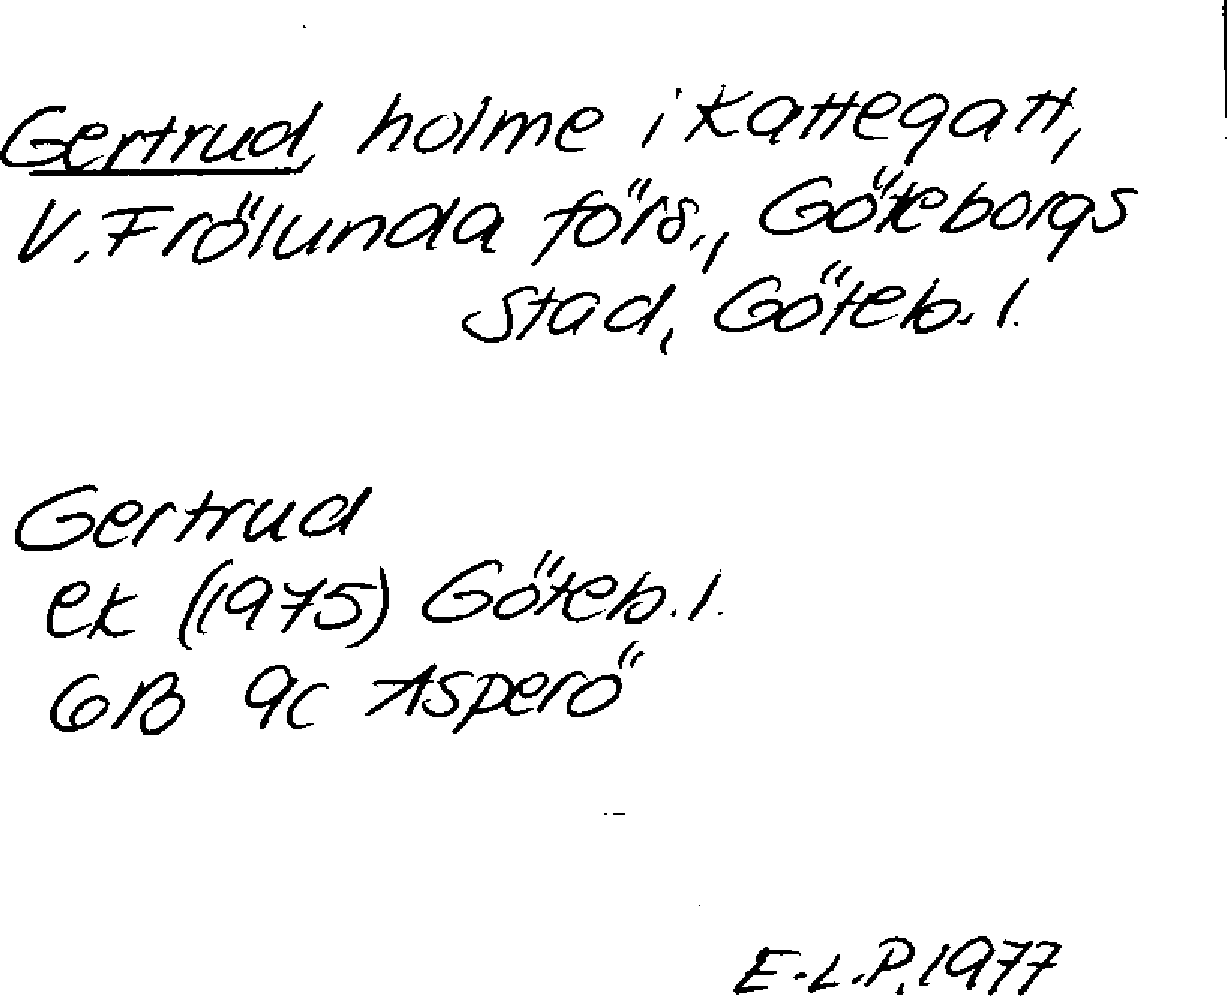 Gertrud, holme i Kattegatt,
V. Frölunda förs., Göteborgs
stad, Göteb. l.
Gertrud
ek (1975) Göteb. l.
6B 9c Asperö
E.L.P. 1977